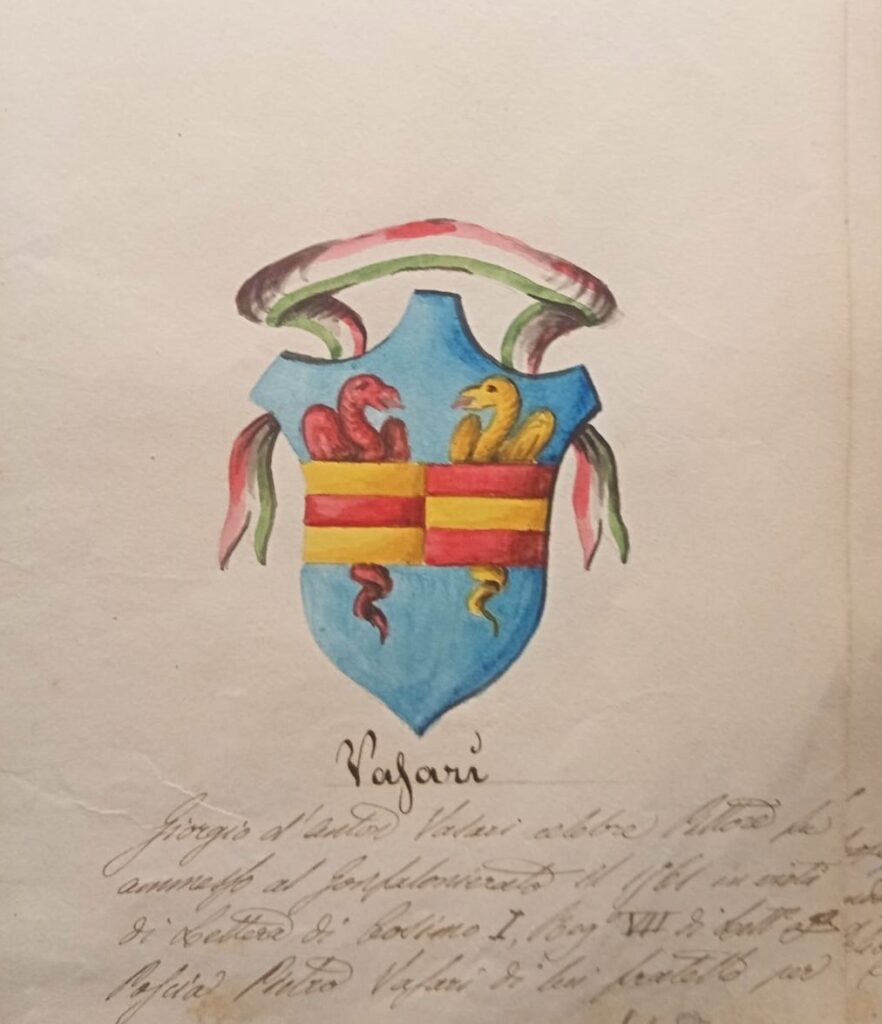 Vasari
Giorgio d'Anton Vasari celebre Pittore fu
ammesso al Gonfalonierato il 1561 in virtù
di Lettera di Cosimo I, Reg.º VII di Lett.e
Poscia Pietro Vasari di lui fratello per